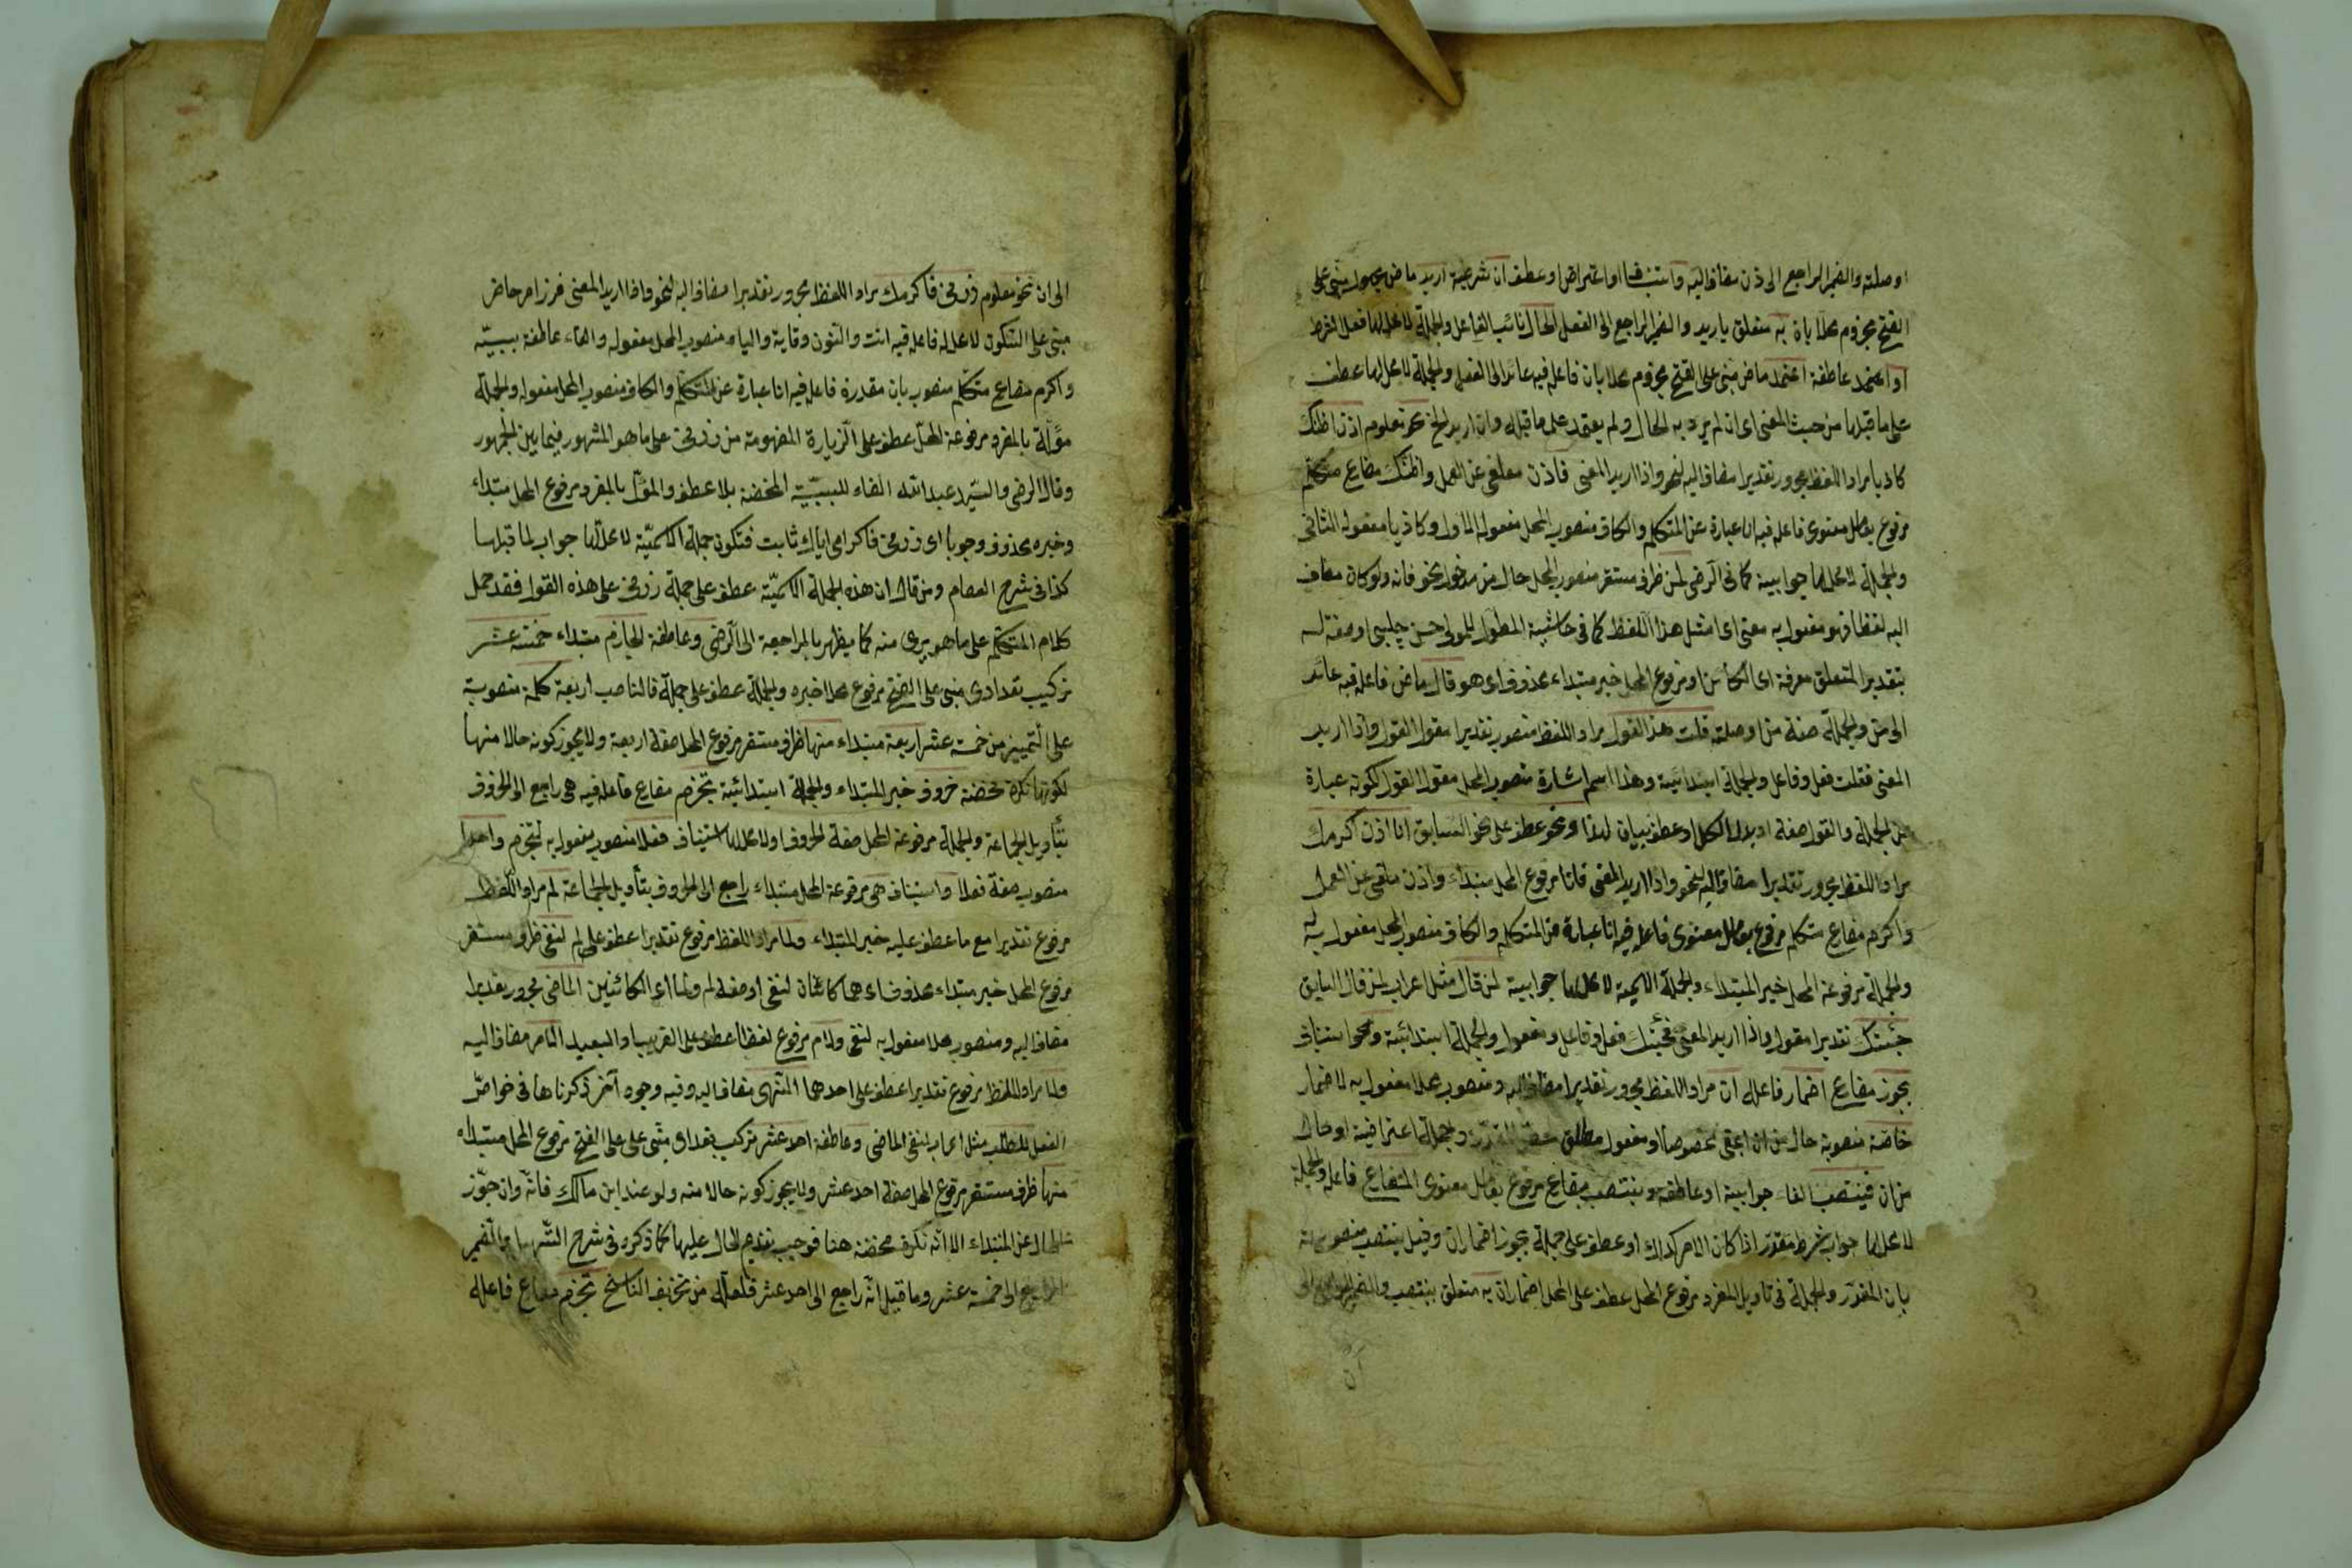 اوصلته والضمير الراجع الى اذن مضاف اليه واستيناف او اعتراض او عطف ان شرطية اريد ماض مجهول مبنى على
الفتح مجزوم محلا بان به متعلق باريد والضمير الراجع الى الفعل الحال نائب الفاعل والجملة لا محل لها فعل الشرط
او اعتمد عاطفة اعتمد ماض مبنى على الفتح مجزوم محلا بان فاعله فيه عائد الى الفعل والجملة لا محل لها عطف
على ما قبلها من حيث المعنى اى ان لم يرد به الحال ولم يعتمد على ما قبله وان اريد الخ نحو معلوم اذن اظنك
كاذبا مراد اللفظ مجرور تقديرا مضاف اليه لنحو واذا اريد المعنى فاذن ملغى عن العمل واظنك مضارع متكلم
مرفوع بعامل معنوى فاعله فيه انا عبارة عن المتكلم والكاف منصوب المحل مفعوله الاول وكاذبا مفعوله الثانى
والجملة لا محل لها جوابية كما فى الرضى لمن ظرف مستقر منصوب المحل حال من مدخول نحو فانه ولو كان مضاف
اليه لفظا فهو مفعول به معنى اى امثل هذا اللفظ كما فى حاشية المطول للمولى حسن چلبى او صفة له
بتقدير المتعلق معرفة اى الكائن او مرفوع المحل خبر مبتداء محذوف اى هو قال ماض فاعله فيه عائد
الى من والجملة صفة من او صلته قلت هذا القول مراد اللفظ منصوب تقديرا مقول القول واذا اريد
المعنى فقلت فعل وفاعل والجملة ابتدائية وهذا اسم اشارة منصوب المحل مقول القول لكونه عبارة
عن الجملة والقول صفة او بدل الكل او عطف بيان لهذا ونحو عطف على نحو السابق انا اذن اكرمك
مراد اللفظ مجرور تقديرا مضاف اليه لنحو واذا اريد المعنى فانا مرفوع المحل مبتداء واذن ملغى عن العمل
واكرم مضارع متكلم مرفوع بعامل معنوى فاعله فيه انا عبارة عن المتكلم والكاف منصوب المحل مفعول به
والجملة مرفوعة المحل خبر المبتداء والجملة الاسمية لا محل لها جوابية لمن قال مثل اعراب لمن قال السابق
جئتك تقديرا مقول واذا اريد المعنى فجئتك فعل وفاعل ومفعول والجملة ابتدائية ونحو استيناف
يجوز مضارع اضمار فاعله ان مراد اللفظ مجرور تقديرا مضاف اليه ومنصوب محلا مفعول به لاضمار
خاصة منصوبة حال من ان اعنى مخصوصا او مفعول مطلق والجملة اعتراضية او حال
من ان فينتصب الفاء جوابية او عاطفة وينتصب مضارع مرفوع بعامل معنوى المضارع فاعله والجملة
لا محل لها جواب شرط مقدر اذا كان الامر كذلك او عطف على جملة يجوز اضمار ان وقيل ينتصب منصوب
بان المقدر والجملة فى تاويل المفرد مرفوع المحل عطف على المحل اضمار ان به متعلق بينتصب والضمير الراجع الى
ان
الى ان نحو معلوم زرنى فاكرمك مراد اللفظ مجرور تقديرا مضاف اليه لنحو واذا اريد المعنى فزر امر حاضر
مبنى على السكون لا محل له فاعله فيه انت والنون وقاية والياء منصوب المحل مفعوله والفاء عاطفة سببية
واكرم مضارع متكلم منصوب بان مقدرة فاعله فيه انا عبارة عن المتكلم والكاف منصوب المحل مفعوله والجملة
مؤلة بالمفرد مرفوعة المحل عطف على الزيارة المفهومة من زرنى على ما هو المشهور فيما بين الجمهور
وقال الرضى والسيد عبد الله الفاء للسببية المحضة بلا عطف والمؤل بالمفرد مرفوع المحل مبتداء
وخبره محذوف وجوبا اى زرنى فاكرامى اياك ثابت فتكون جملة الاسمية لا محل لها جواب لما قبلها
كذا فى شرح العصام ومن قال ان هذه الجملة الاسمية عطف على جملة زرنى على هذه القول فقد حمل
كلام المتكلم على ما هو برى منه كما يظهر بالمراجعة الى الرضى وعاطفة الجازم مبتداء خمسة عشر
تركيب تعدادى مبنى على الفتح مرفوع محلا خبره والجملة عطف على جملة فالناصب اربعة كلمة منصوبة
على التمييز من خمسة عشر اربعة مبتداء منها ظرف مستقر مرفوع المحل صفة اربعة ولا يجوز كونه حالا منها
لكونها نكرة محضة حروف خبر المبتداء والجملة ابتدائية تجزم مضارع فاعله فيه هى راجع الى الحروف
بتأويل الجماعة والجملة مرفوعة المحل صفة الحروف او لا محل لها استيناف فعلا منصوب مفعول به لتجزم واحدا
منصوب صفة فعلا واستيناف هى مرفوعة المحل مبتداء راجع الى الحروف بتأويل الجماعة لم مراد اللفظ
مرفوع تقديرا مع ما عطف عليه خبر المبتداء ولما مراد اللفظ مرفوع تقديرا عطف على لم لنفى ظرف مستقر
مرفوع المحل خبر مبتداء محذوف اى هما كائنان لنفى او صفة لم ولما اى الكائنين الماضى مجرور تقديرا
مضاف اليه ومنصوب محلا مفعول به لنفى ولام مرفوع لفظا عطف على القريب او البعيد الامر مضاف اليه
ولا مراد اللفظ مرفوع تقديرا عطف على احدهما النهى مضاف اليه وفيه وجوه آخر ذكرناها فى خواص
الفعل للطلب مثل اعراب لنفى الماضى وعاطفة احد عشر تركيب تعدادى مبنى على على الفتح مرفوع المحل مبتداء
منها ظرف مستقر مرفوع المحل صفة احد عشر ولا يجوز كونه حالا منه ولو عند ابن مالك فانه وان جوز
الحال عن المبتداء الا انه نكرة محضة هنا فوجب تقديم الحال عليها كما ذكره فى شرح التسهيل والضمير
الراجع الى خمسة عشر وما قيل انه راجع الى احد عشر فلعله من تحريف الناسخ تجزم مضارع فاعله